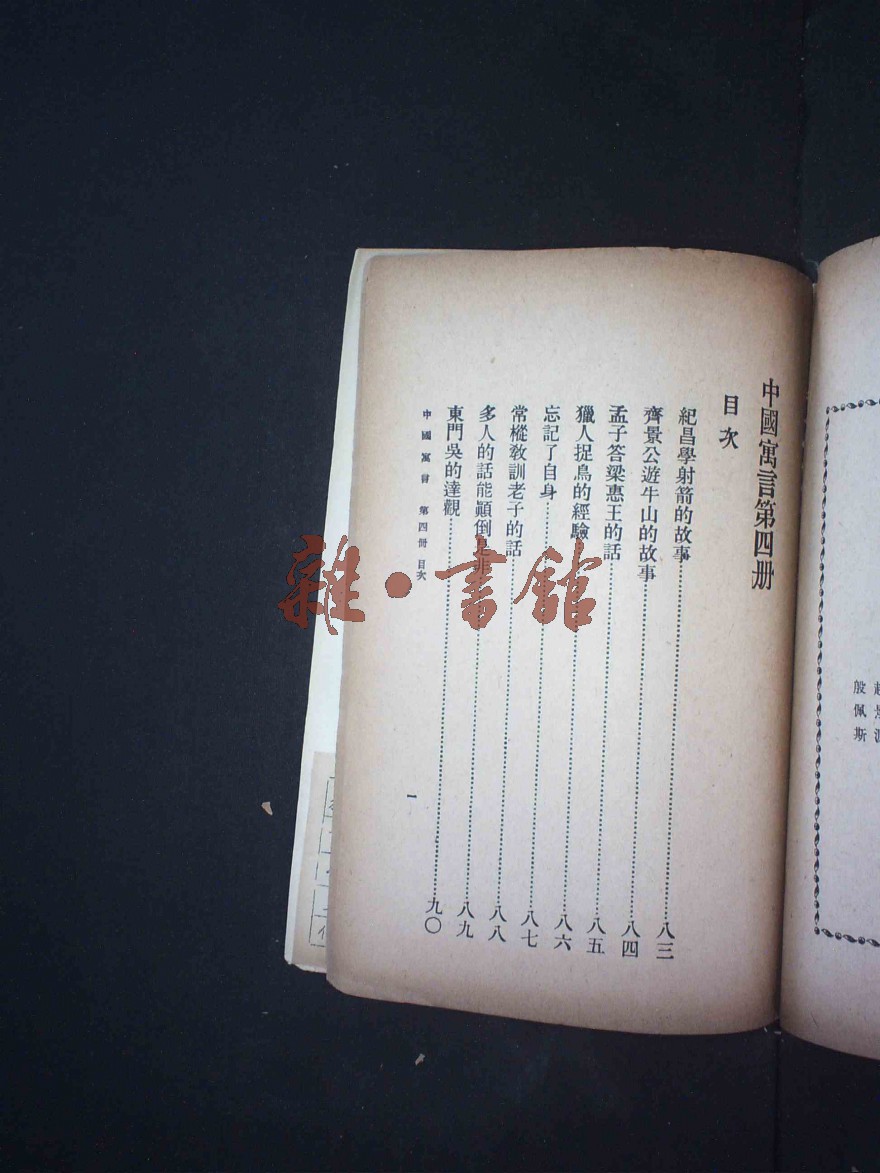 中國寓言第四册
目次
紀昌學射箭的故事……八三
齊景公遊牛山的故事……八四
孟子答梁惠王的話……八五
獵人捉鳥的經驗……八六
忘記了自身……八七
常樅教訓老子的話……八八
多人的話能顚倒是非……八九
東門吳的達觀……九〇
中國寓言 第四冊 目次
一
殷佩斯
雜·書館